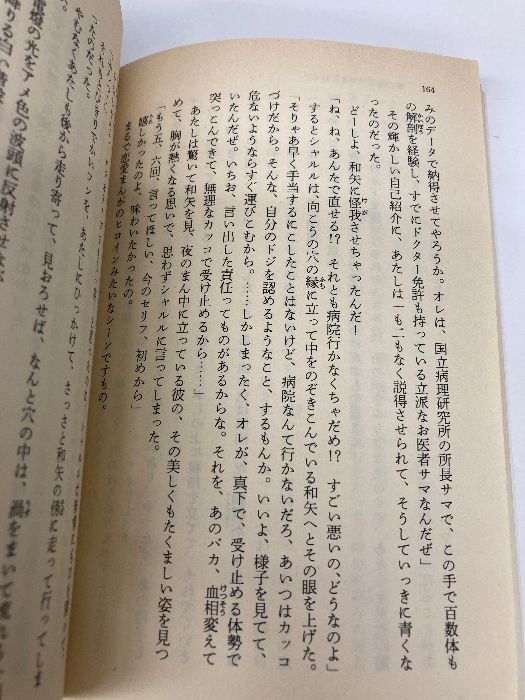 164
みのデータで納得させてやろうか。オレは、国立病理研究所の所長サマで、この手で百数体も
の解剖を経験し、すでにドクター免許も持っている立派なお医者サマなんだぜ」
その輝かしい自己紹介に、あたしは一も二もなく説得させられて、そうしていっきに青くな
ったのだった。
どーしよ、和矢に怪我させちゃったんだ！
「ね、ね、あんたで直せる!?　それとも病院行かなくちゃだめ!?　すごい悪いの、どうなのよ」
するとシャルルは、向こうの穴の縁に立って中をのぞきこんでいる和矢へとその眼を上げた。
「そりゃあ早く手当するにこしたことはないけど、病院なんて行かないだろ、あいつはカッコ
づけだから。そんな、自分のドジを認めるようなこと、するもんか。いいよ、様子を見てて、
危ないようならすぐ運びこむから。……しかしまったく、オレが、真下で、受け止める体勢で
いたんだぜ。いちお、言い出した責任ってものがあるからな。それを、あのバカ、血相変えて
突っこんできて、無理なカッコで受け止めるから……」
あたしは驚いて和矢を見、夜のまん中に立っている彼の、その美しくもたくましい姿を見つ
めて、胸が熱くなる思いで、思わずシャルルに言ってしまった。
「もう五、六回、言ってほしい、今のセリフ、初めから」
嬉しかったのよ、味わいたかったの。
まるで恋愛まんがのヒロインみたいなシーンですもの。
たのだった。
やむなくあたしも後から走り寄って、見おろせば、なんと穴の中は、渦をまいて
電燈の光をアメ色の波頭に反射させ